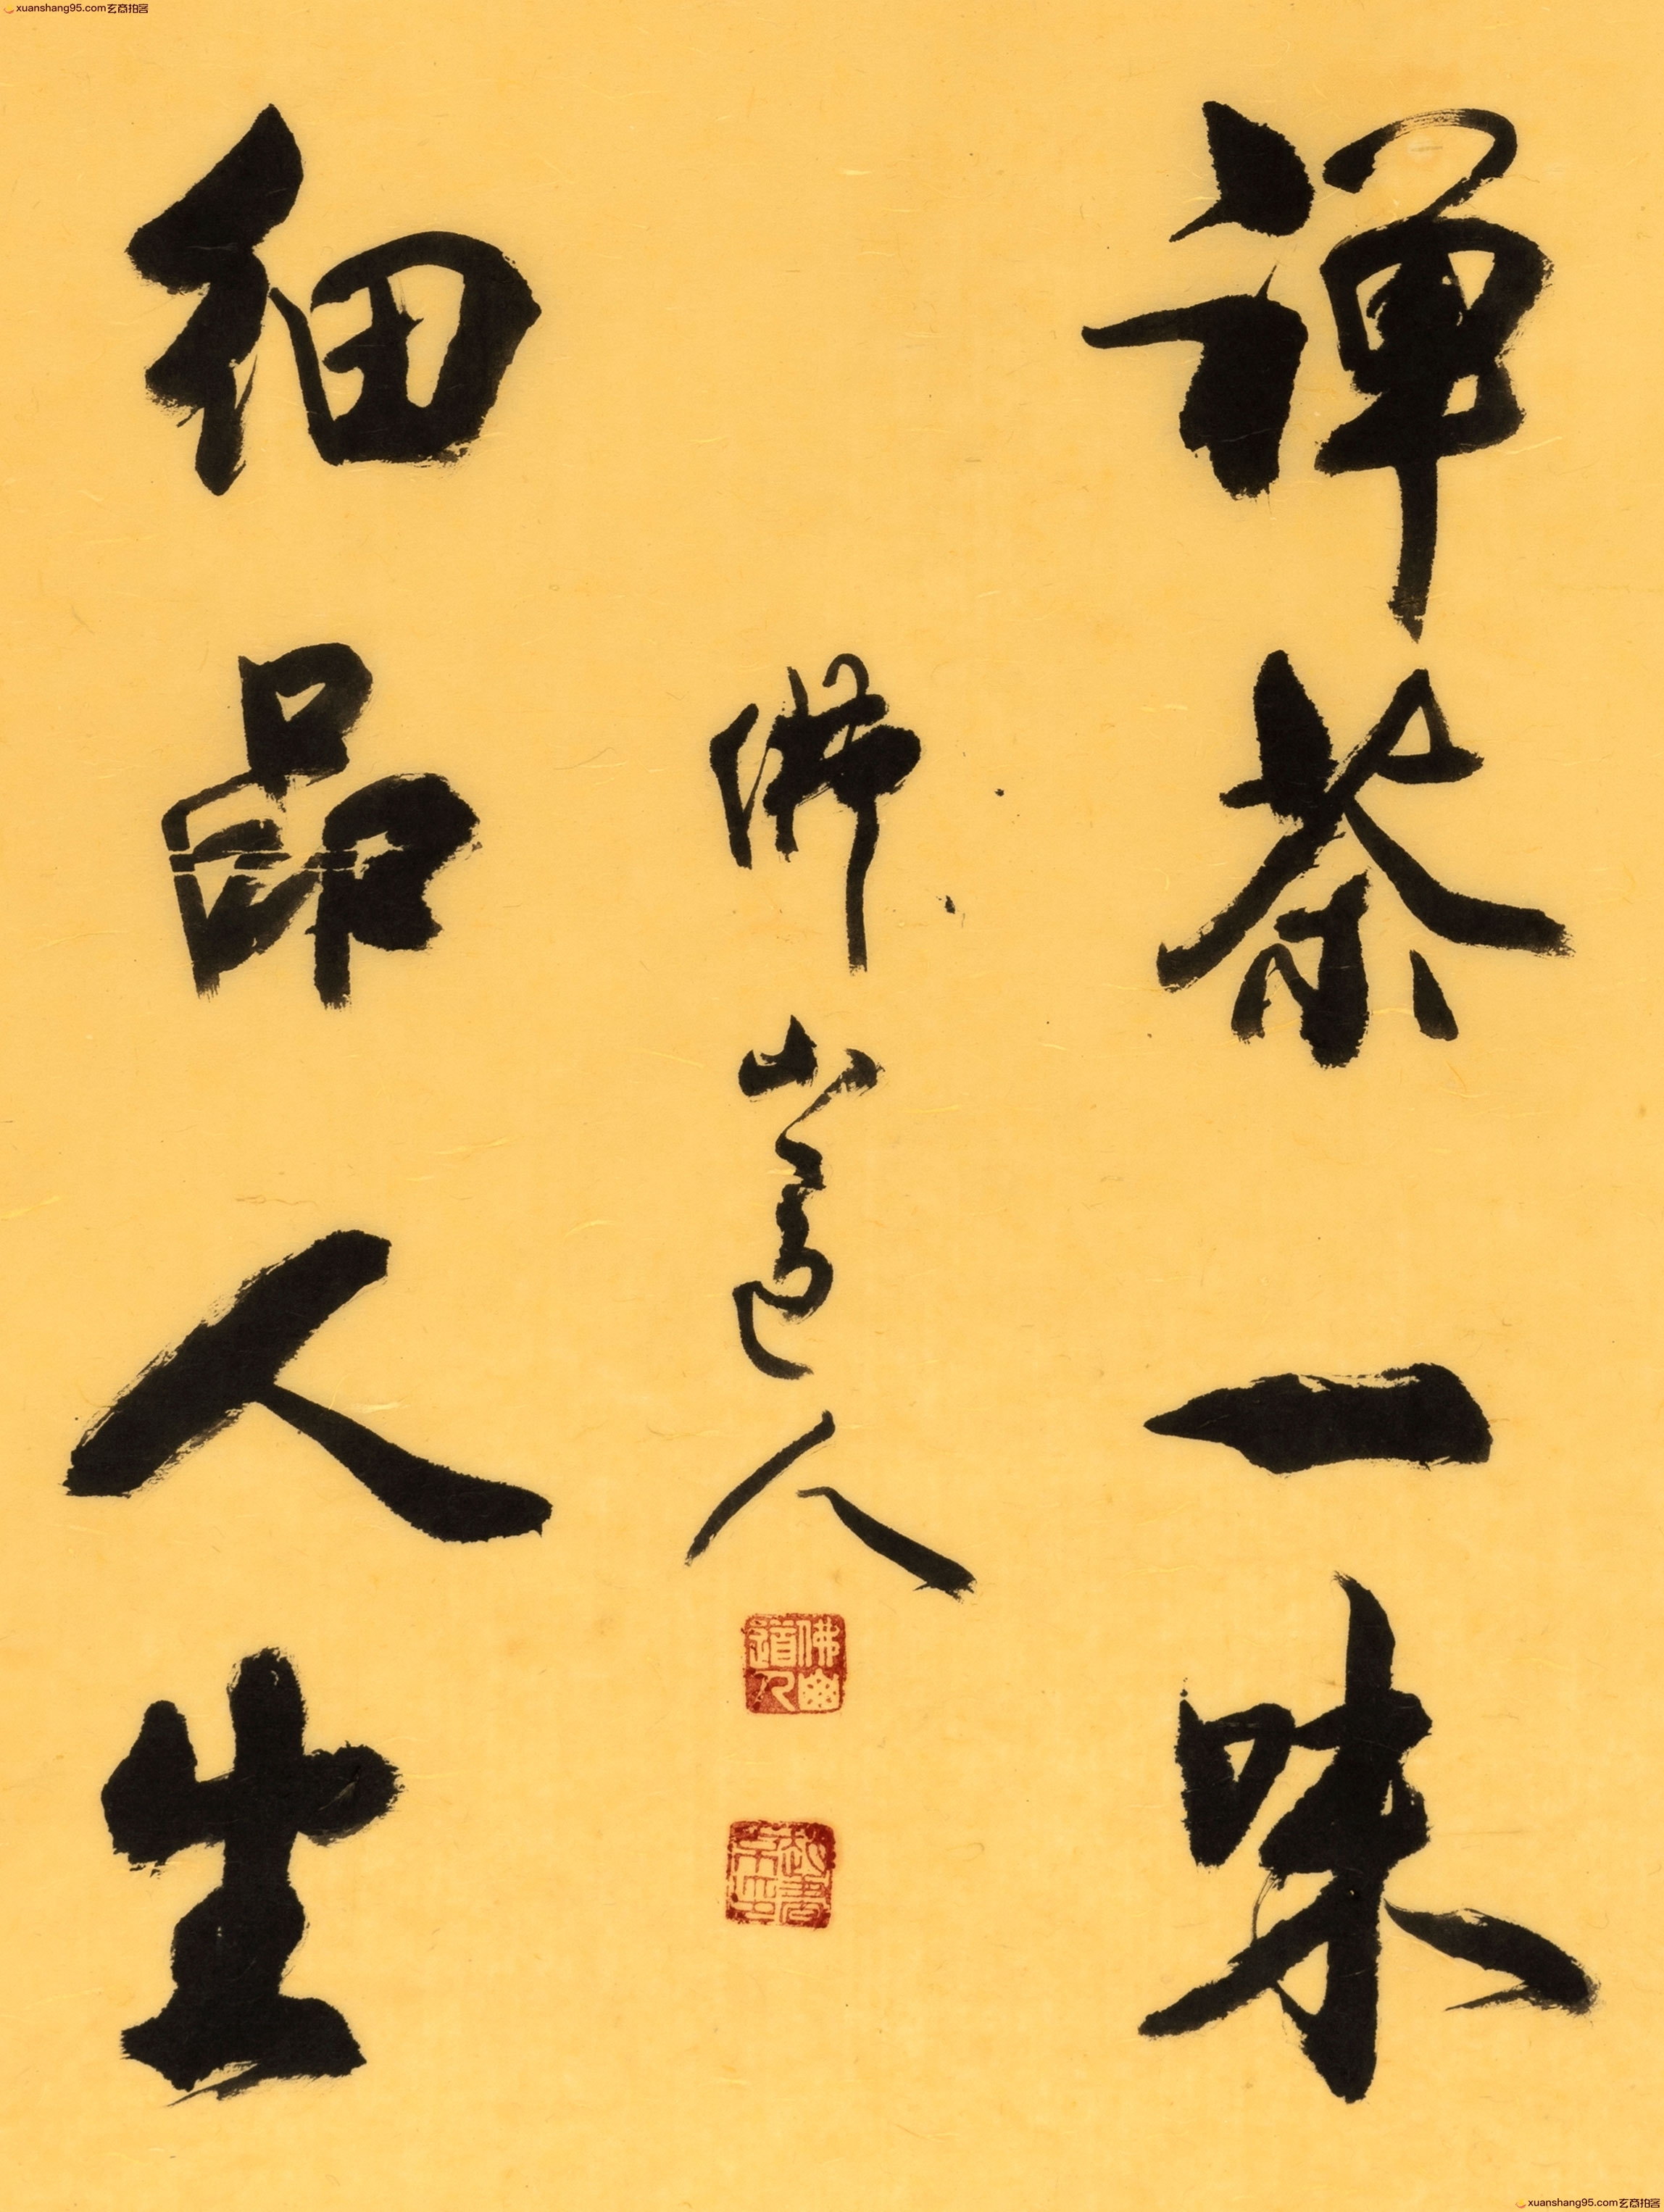 xuanshang95.com玄商拍客
禅茶一味
佛山道人
佛山道人
细品人生
xuanshang95.com玄商拍客